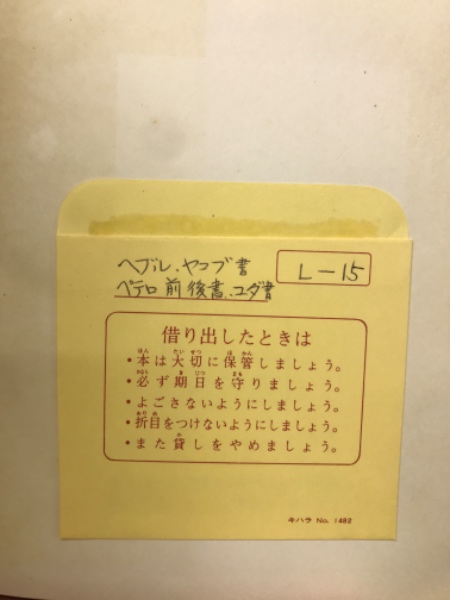 ヘブル、ヤコブ書
L-15
ペテロ前後書、ユダ書
借り出したときは
・本は大切に保管しましょう。
・必ず期日を守りましょう。
・よごさないようにしましょう。
・折目をつけないようにしましょう。
・また貸しをやめましょう。
キハラ No. 1482